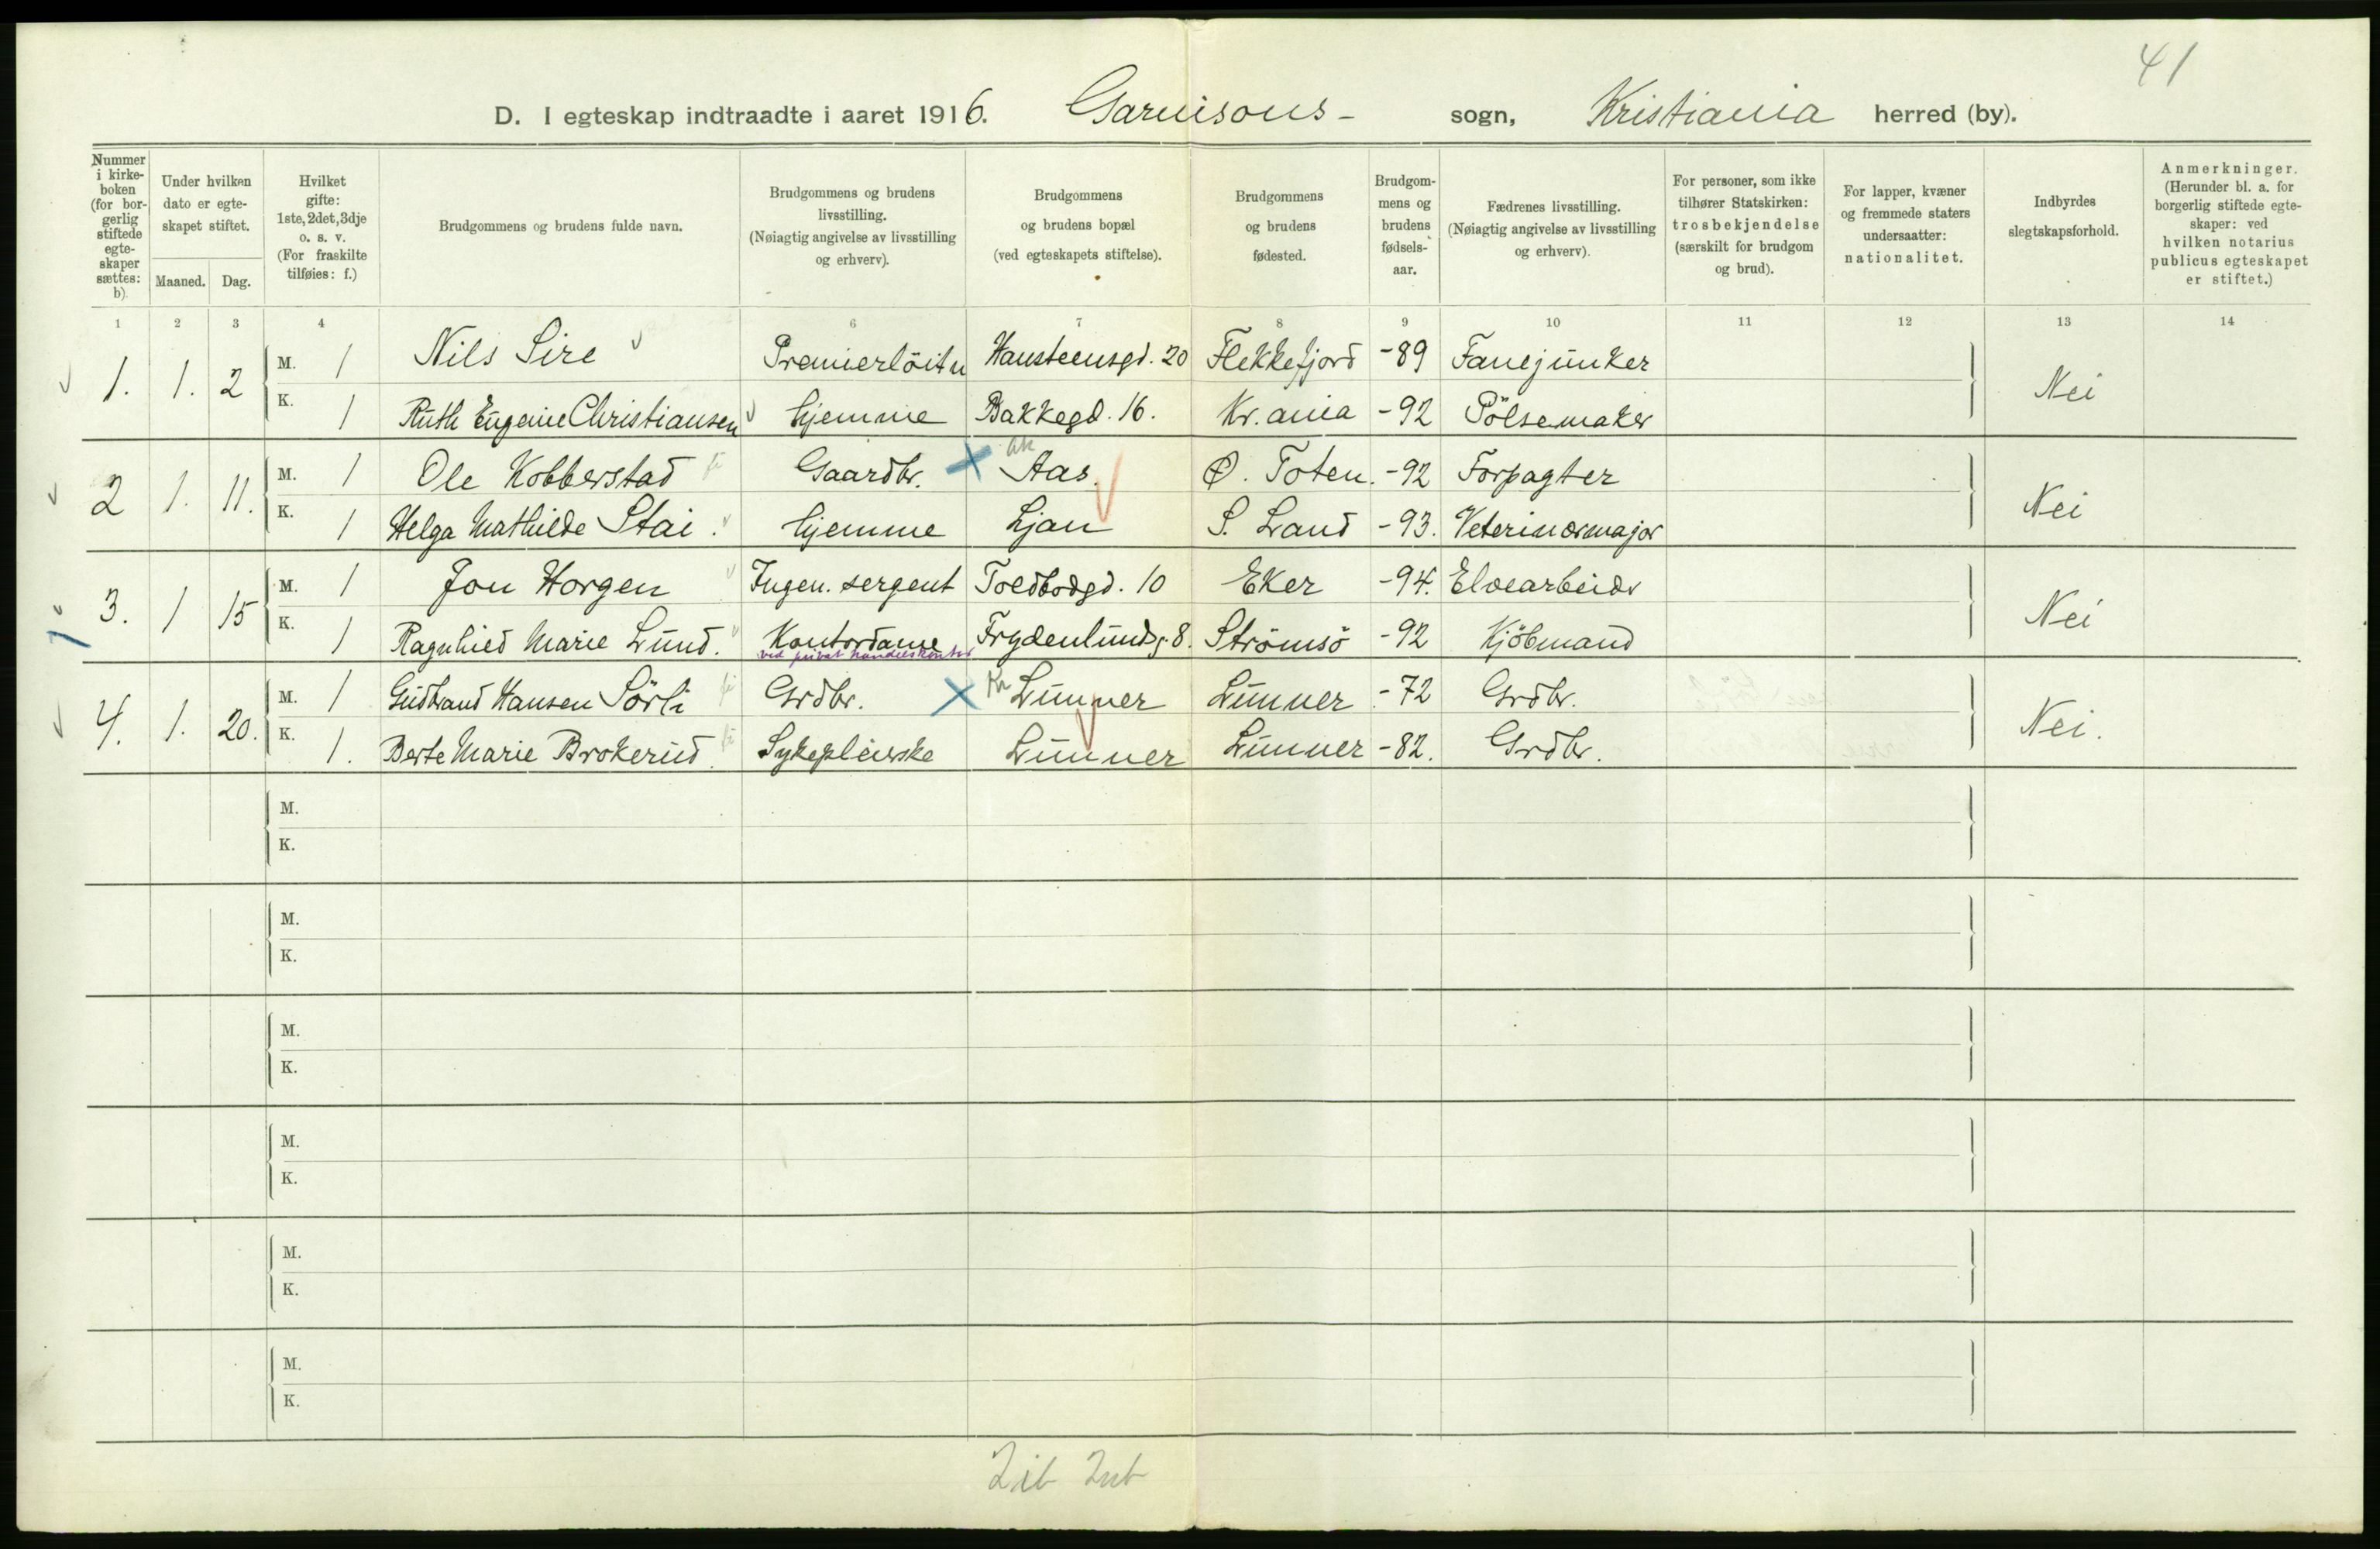 41
D. I egteskap indtraadte i aaret 1916. Garnisons- sogn, Kristiania herred (by).
Nummer i kirke-boken (for bor-gerlig stiftede egte-skaper sættes: b).
Under hvilken dato er egte-skapet stiftet.
Maaned. Dag.
Hvilket gifte: 1ste, 2det, 3dje o. s. v. (For fraskilte tilføies: f.)
Brudgommens og brudens fulde navn.
Brudgommens og brudens livsstilling. (Nøiagtig angivelse av livsstilling og erhverv).
Brudgommens og brudens bopæl (ved egteskapets stiftelse).
Brudgommens og brudens fødested.
Brudgom-mens og brudens fødsels-aar.
Fædrenes livsstilling. (Nøiagtig angivelse av livsstilling og erhverv).
For personer, som ikke tilhører Statskirken: trosbekjendelse (særskilt for brudgom og brud).
For lapper, kvæner og fremmede staters undersaatter: nationalitet.
Indbyrdes slegtskapsforhold.
Anmerkninger. (Herunder bl. a. for borgerlig stiftede egte-skaper: ved hvilken notarius publicus egteskapet er stiftet.)
1 2 3 4 6 7 8 9 10 11 12 13 14
1. 1. 2 M. 1 Nils Sire Premierlöitn Hansteensgd. 20 Flekkefjord -89 Fanejunker Nei
K. 1 Ruth Eugenie Christiansen hjemme Bakkegd. 16. Kr.ania -92 Pölsemaker
2 1. 11. M. 1 Ole Kobberstad Gaardbr. Ak Aas. Ø. Toten. -92 Forpagter Nei
K. 1 Helga Mathilde Stai. hjemme Ljan S. Land -93. Veterinærmajor
3. 1 15 M. 1 Jon Horgen Ingen. sergent Toldbodgd. 10 Eker -94. Elvearbeider Nei
K. 1 Ragnhild Marie Lund. Kontordame Frydenlundg 8. Strömsö -92 Kjöbmand
ved privat handelskontor
4. 1. 20. M. 1 Gudbrand Hansen Sörli Grdbr. Kr Lunner Lunner -72 Grdbr. Nei.
K. 1. Berte Marie Brokerud. Sykepleierske Lunner Lunner -82. Grdbr.
M.
K.
M.
K.
M.
K.
M.
K.
M.
K.
M.
K.
2 ib 2ub